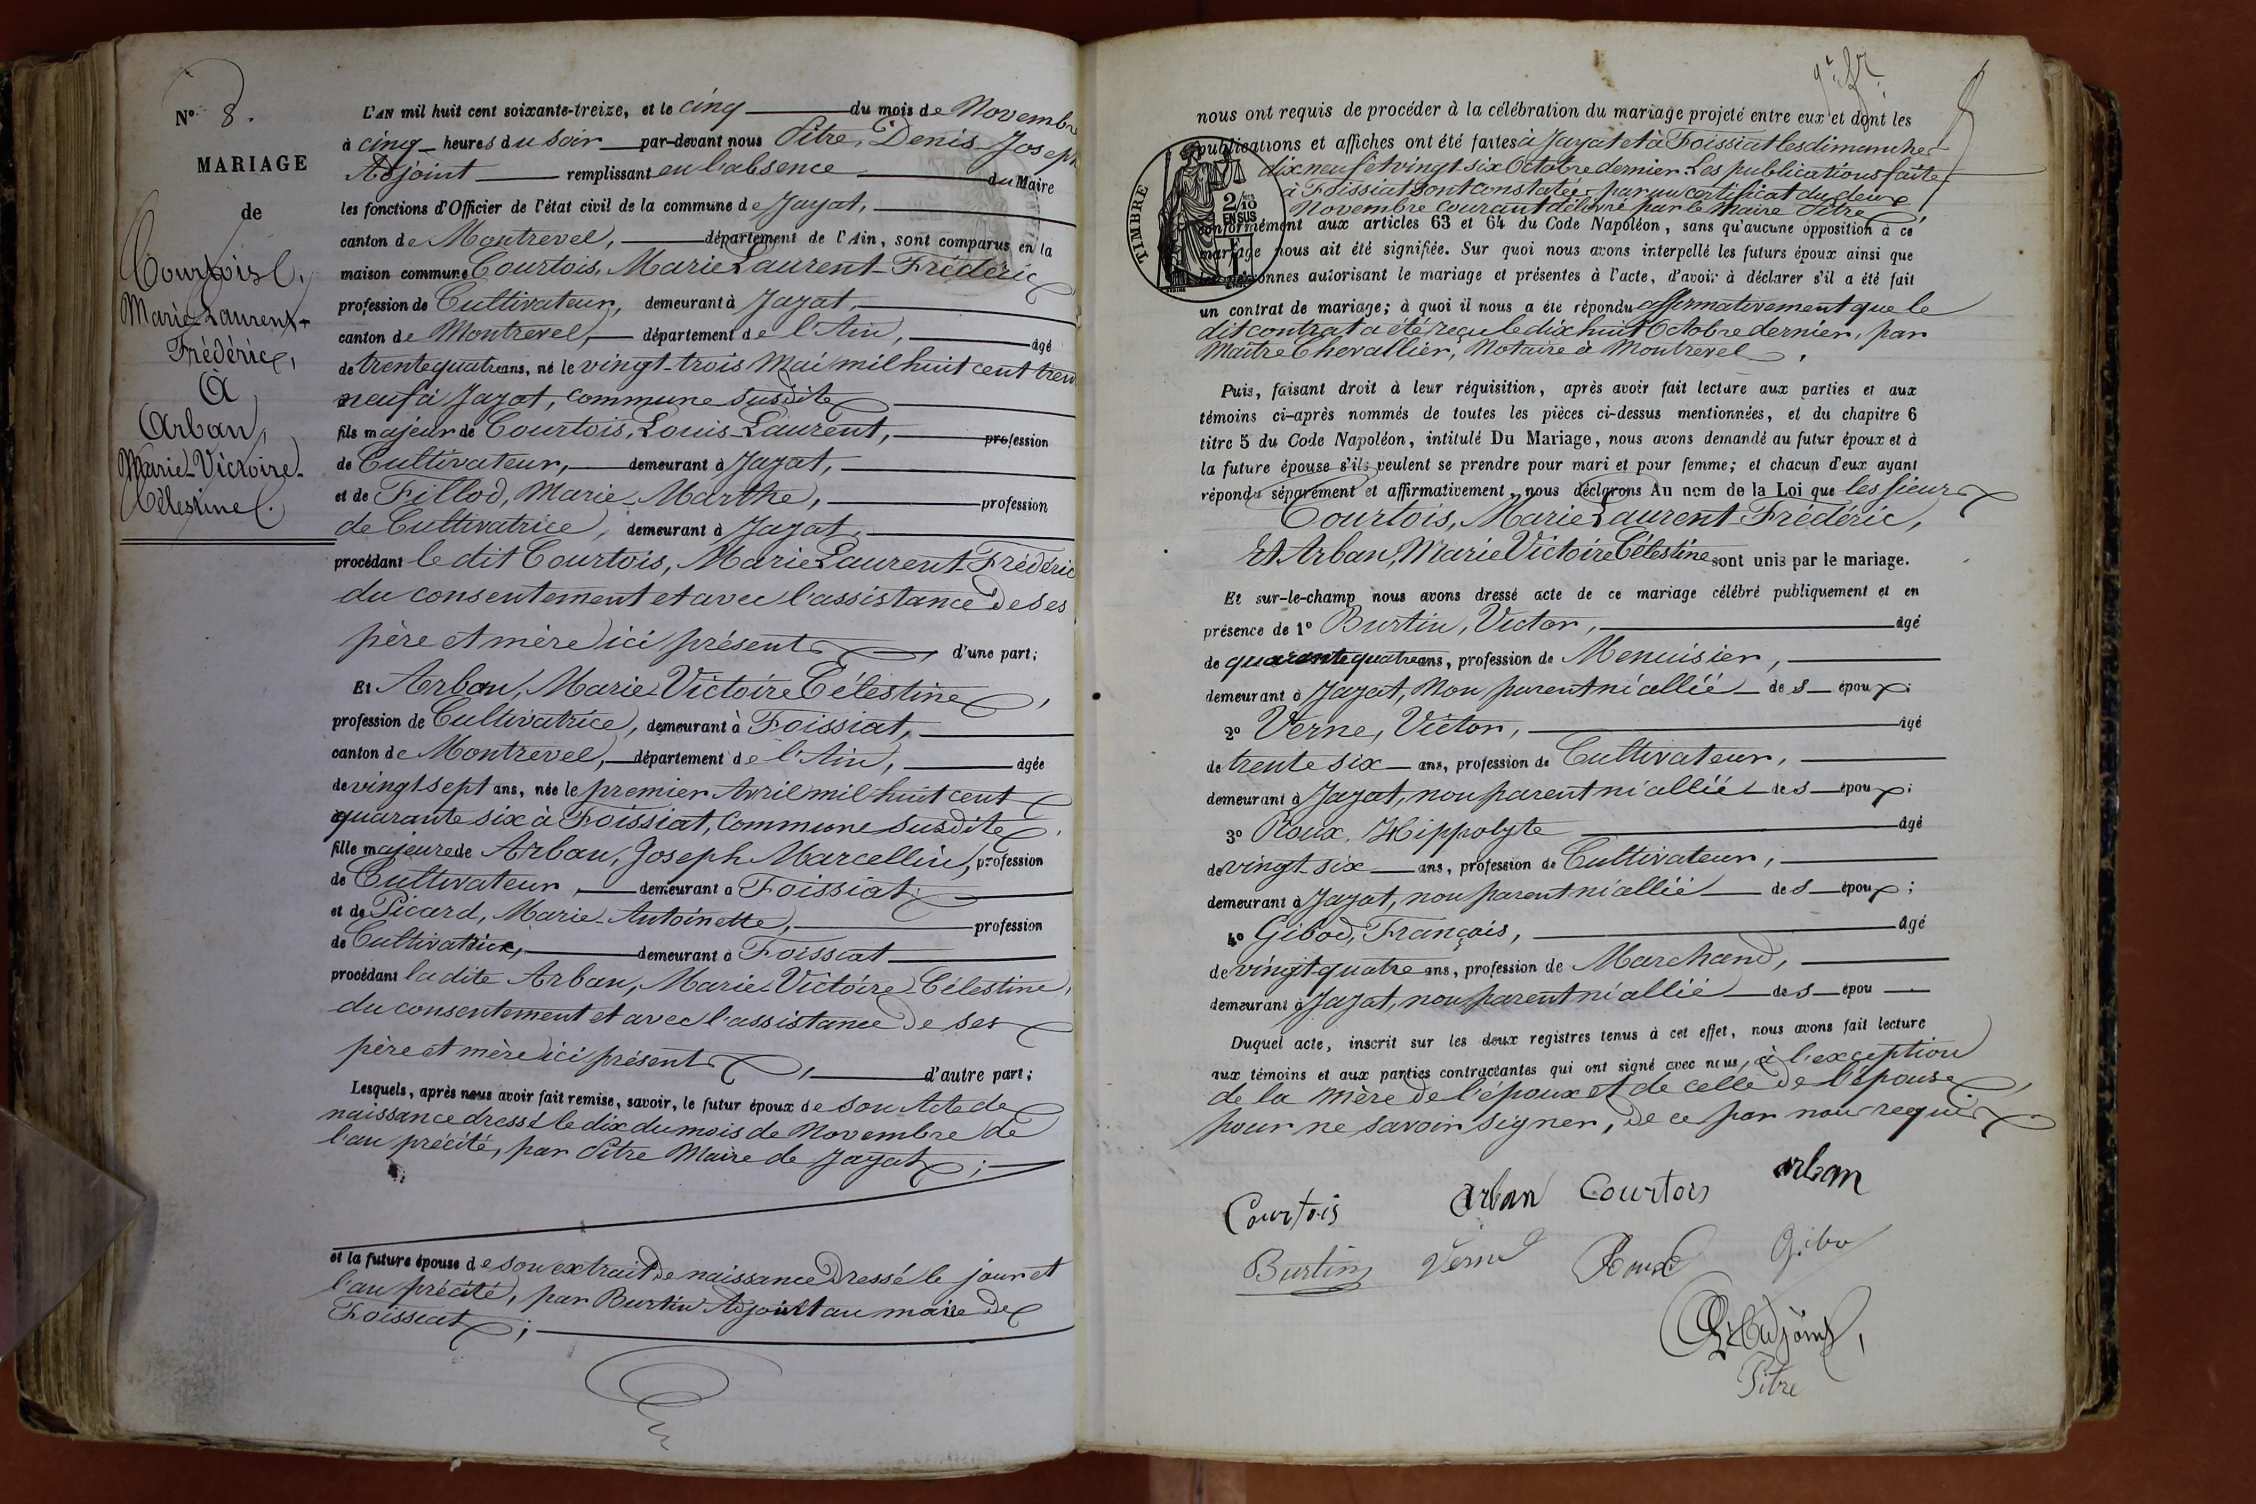 N° 8.
MARIAGE
de
Courtois,
Marie-Laurent-
Frédéric,
À
Arban,
Marie-Victoire-
Célestine.
L'AN mil huit cent soixante-treize, et le cinq du mois de Novembre
à cinq heures du soir par-devant nous Pitre, Denis-Joseph
Adjoint remplissant en l'absence du Maire
les fonctions d'Officier de l'état civil de la commune de Jayat,
canton de Montrevel, département de l'Ain, sont comparus en la
maison commune Courtois, Marie Laurent-Frédéric
profession de Cultivateur, demeurant à Jayat,
canton de Montrevel, département de l'Ain, âgé
de trente quatre ans, né le vingt-trois Mai mil huit cent tren
neuf à Jayat, commune susdite
fils majeur de Courtois, Louis-Laurent, profession
de Cultivateur, demeurant à Jayat,
et de Fillod, Marie-Marthe, profession
de Cultivatrice, demeurant à Jayat,
procédant le dit Courtois, Marie Laurent-Frédéric
du consentement et avec l'assistance de ses
père et mère ici présents, d'une part;
Et Arban, Marie-Victoire Célestine,
profession de Cultivatrice, demeurant à Foissiat,
canton de Montrevel, département de l'Ain, âgée
de vingt sept ans, née le premier Avril mil huit cent
quarante six à Foissiat, commune susdite,
fille majeure de Arban, Joseph Marcellin, profession
de Cultivateur, demeurant à Foissiat;
et de Picard, Marie-Antoinette, profession
de Cultivatrice, demeurant à Foissiat
procédant la dite Arban, Marie-Victoire Célestine,
du consentement et avec l'assistance de ses
père et mère ici présents, d'autre part;
Lesquels, après nous avoir fait remise, savoir, le futur époux de son Acte de
naissance dressé le dix du mois de Novembre de
l'an précité, par Pitre Maire de Jayat;
et la future épouse de son extrait de naissance dressé le jour et
l'an précité, par Burtin Adjoint au maire de
Foissiat;
nous ont requis de procéder à la célébration du mariage projeté entre eux et dont les
publications et affiches ont été faites à Jayat et à Foissiat les dimanches
dix neuf et vingt-six Octobre dernier. Les publications faites
à Foissiat sont constatées par un certificat du deux
Novembre courant délivré par le Maire Pitre
TIMBRE
2/10
EN SUS
conformément aux articles 63 et 64 du Code Napoléon, sans qu'aucune opposition à ce
mariage nous ait été signifiée. Sur quoi nous avons interpellé les futurs époux ainsi que
les personnes autorisant le mariage et présentes à l'acte, d'avoir à déclarer s'il a été fait
un contrat de mariage; à quoi il nous a été répondu affirmativement que le
dit contrat a été reçu le dix huit Octobre dernier, par
Maître Chevallier, Notaire à Montrevel.
Puis, faisant droit à leur réquisition, après avoir fait lecture aux parties et aux
témoins ci-après nommés de toutes les pièces ci-dessus mentionnées, et du chapitre 6
titre 5 du Code Napoléon, intitulé Du Mariage, nous avons demandé au futur époux et à
la future épouse s'ils veulent se prendre pour mari et pour femme; et chacun d'eux ayant
répondu séparément et affirmativement, nous déclarons Au nom de la Loi que les sieurs
Courtois, Marie Laurent-Frédéric,
Et Arban, Marie Victoire Célestine sont unis par le mariage.
Et sur-le-champ nous avons dressé acte de ce mariage célébré publiquement et en
présence de 1° Burtin, Victor, âgé
de quarante quatre ans, profession de Menuisier,
demeurant à Jayat, Non parent ni allié des époux;
2° Verne, Victor, âgé
de trente six ans, profession de Cultivateur,
demeurant à Jayat, non parent ni allié des époux;
3° Roux, Hippolyte âgé
de vingt-six ans, profession de Cultivateur,
demeurant à Jayat, non parent ni allié des époux;
4° Gibod, François, âgé
de vingt quatre ans, profession de Marchand,
demeurant à Jayat, non parent ni allié des épou
Duquel acte, inscrit sur les deux registres tenus à cet effet, nous avons fait lecture
aux témoins et aux parties contractantes qui ont signé avec nous, à l'exception
de la Mère de l'époux et de celle de l'épouse,
pour ne savoir signer, de ce par nous requis.
Courtois arban Courtois arban
Burtin Verne Roux Gibo
L'adjoint,
Pitre